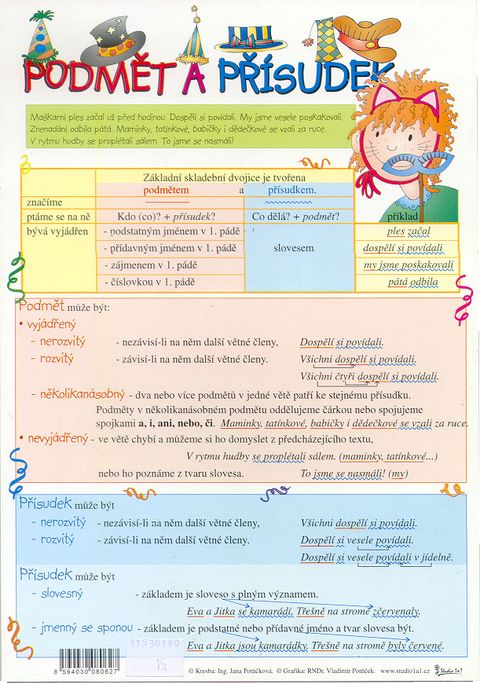 PODMĚT A PŘÍSUDEK
Maškarní ples začal už před hodinou. Dospělí si povídali. My jsme vesele poskakovali.
Znenadání odbila pátá. Maminky, tatínkové, babičky i dědečkové se vzali za ruce.
V rytmu hudby se proplétali sálem. To jsme se nasmáli!
Základní skladební dvojice je tvořena
podmětem a přísudkem.
značíme
ptáme se na ně Kdo (co)? + přísudek? Co dělá? + podmět? příklad
bývá vyjádřen - podstatným jménem v 1. pádě slovesem ples začal
- přídavným jménem v 1. pádě dospělí si povídali
- zájmenem v 1. pádě my jsme poskakovali
- číslovkou v 1. pádě pátá odbila
Podmět může být:
• vyjádřený
- nerozvitý - nezávisí-li na něm další větné členy, Dospělí si povídali.
- rozvitý - závisí-li na něm další větné členy. Všichni dospělí si povídali.
Všichni čtyři dospělí si povídali.
- několikanásobný - dva nebo více podmětů v jedné větě patří ke stejnému přísudku.
Podměty v několikanásobném podmětu oddělujeme čárkou nebo spojujeme
spojkami a, i, ani, nebo, či. Maminky, tatínkové, babičky i dědečkové se vzali za ruce.
• nevyjádřený - ve větě chybí a můžeme si ho domyslet z předcházejícího textu,
V rytmu hudby se proplétali sálem. (maminky, tatínkové...)
nebo ho poznáme z tvaru slovesa. To jsme se nasmáli! (my)
Přísudek může být
- nerozvitý - nezávisí-li na něm další větné členy, Všichni dospělí si povídali.
- rozvitý - závisí-li na něm další větné členy. Dospělí si vesele povídali.
Dospělí si vesele povídali v jídelně.
Přísudek může být
- slovesný - základem je sloveso s plným významem.
Eva a Jitka se kamarádí. Třešně na stromě zčervenaly.
- jmenný se sponou - základem je podstatné nebo přídavné jméno a tvar slovesa být.
Eva a Jitka jsou kamarádky. Třešně na stromě byly červené.
8 594030 080627
15,
© Kresba: Ing. Jana Potůčková. © Grafika: RNDr. Vladimír Potůček. www.studio1a1.cz Studio 1a1